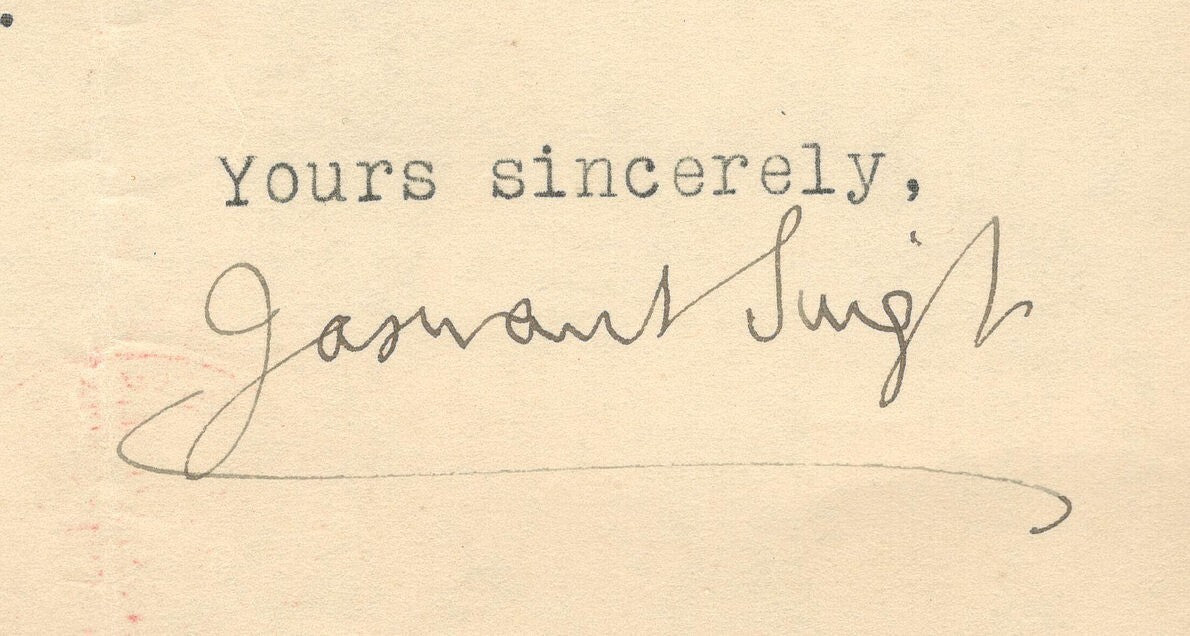 Yours sincerely,
Jaswant Singh